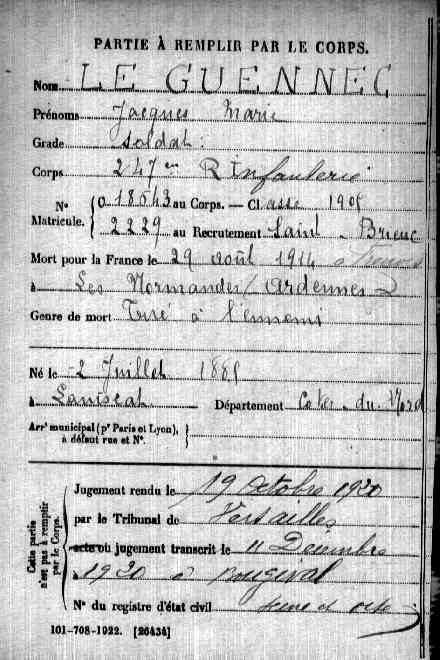 PARTIE À REMPLIR PAR LE CORPS.
Nom LE GUENNEC
Prénoms Jacques Marie
Grade soldat
Corps 247em R Infanterie
Nº Matricule. { 018643 au Corps. — Classe 1905
2229 au Recrutement Saint-Brieuc
Mort pour la France le 29 août 1914
à Les Normandes/Ardennes
Genre de mort Tué à l'ennemi
Né le 2 Juillet 1885
à Laniscat Département Côtes-du-Nord
Arrt municipal (pr Paris et Lyon), à défaut rue et Nº. }
Cette partie n'est pas à remplir par le Corps.
Jugement rendu le 19 Octobre 1920
par le Tribunal de Versailles
acte ou jugement transcrit le 11 Décembre
1920 à Bougival
Nº du registre d'état civil Seine et Oise
101-708-1922. [26434]